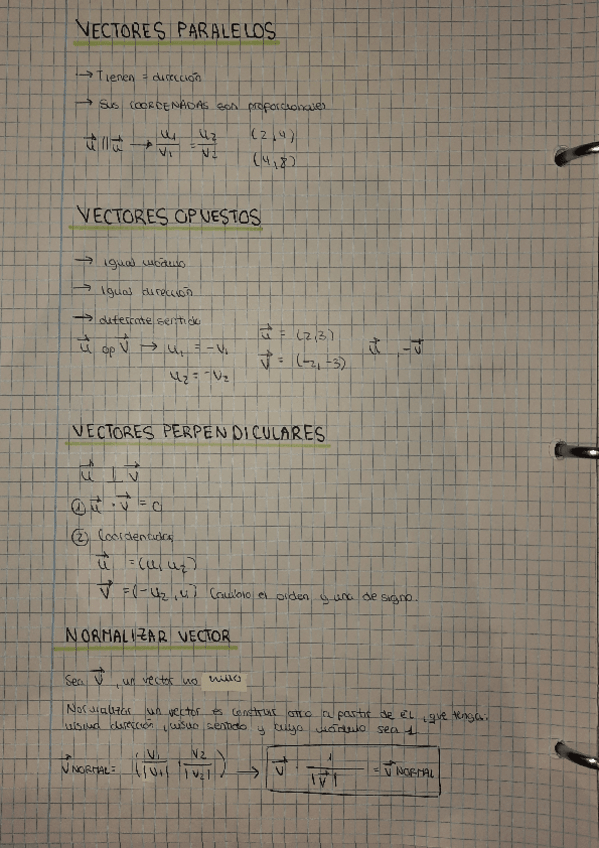 VECTORES PARALELOS
→ Tienen = dirección
→ Sus COORDENADAS son proporcionales
u⃗ || u⃗ → u₁/v₁ = u₂/v₂ (2,4)
(4,8)
VECTORES OPUESTOS
→ igual módulo
→ igual dirección
→ diferente sentido
u⃗ op v⃗ → u₁ = -v₁ u⃗ = (2,3) u⃗, -v⃗
u₂ = -v₂ v⃗ = (-2,-3)
VECTORES PERPENDICULARES
u⃗ ⊥ v⃗
① u⃗ · v⃗ = 0
② Coordenadas
u⃗ = (u₁ u₂)
v⃗ = (-u₂, u₁) Cambio el orden y uno de signo.
NORMALIZAR VECTOR
Sea v⃗, un vector no nulo
Normalizar un vector es construir otro a partir de él, que tenga:
misma dirección, mismo sentido y cuyo módulo sea 1
v⃗ NORMAL = (v₁/|v₁| , v₂/|v₂|) → v⃗ · 1/|v⃗| = v⃗ NORMAL